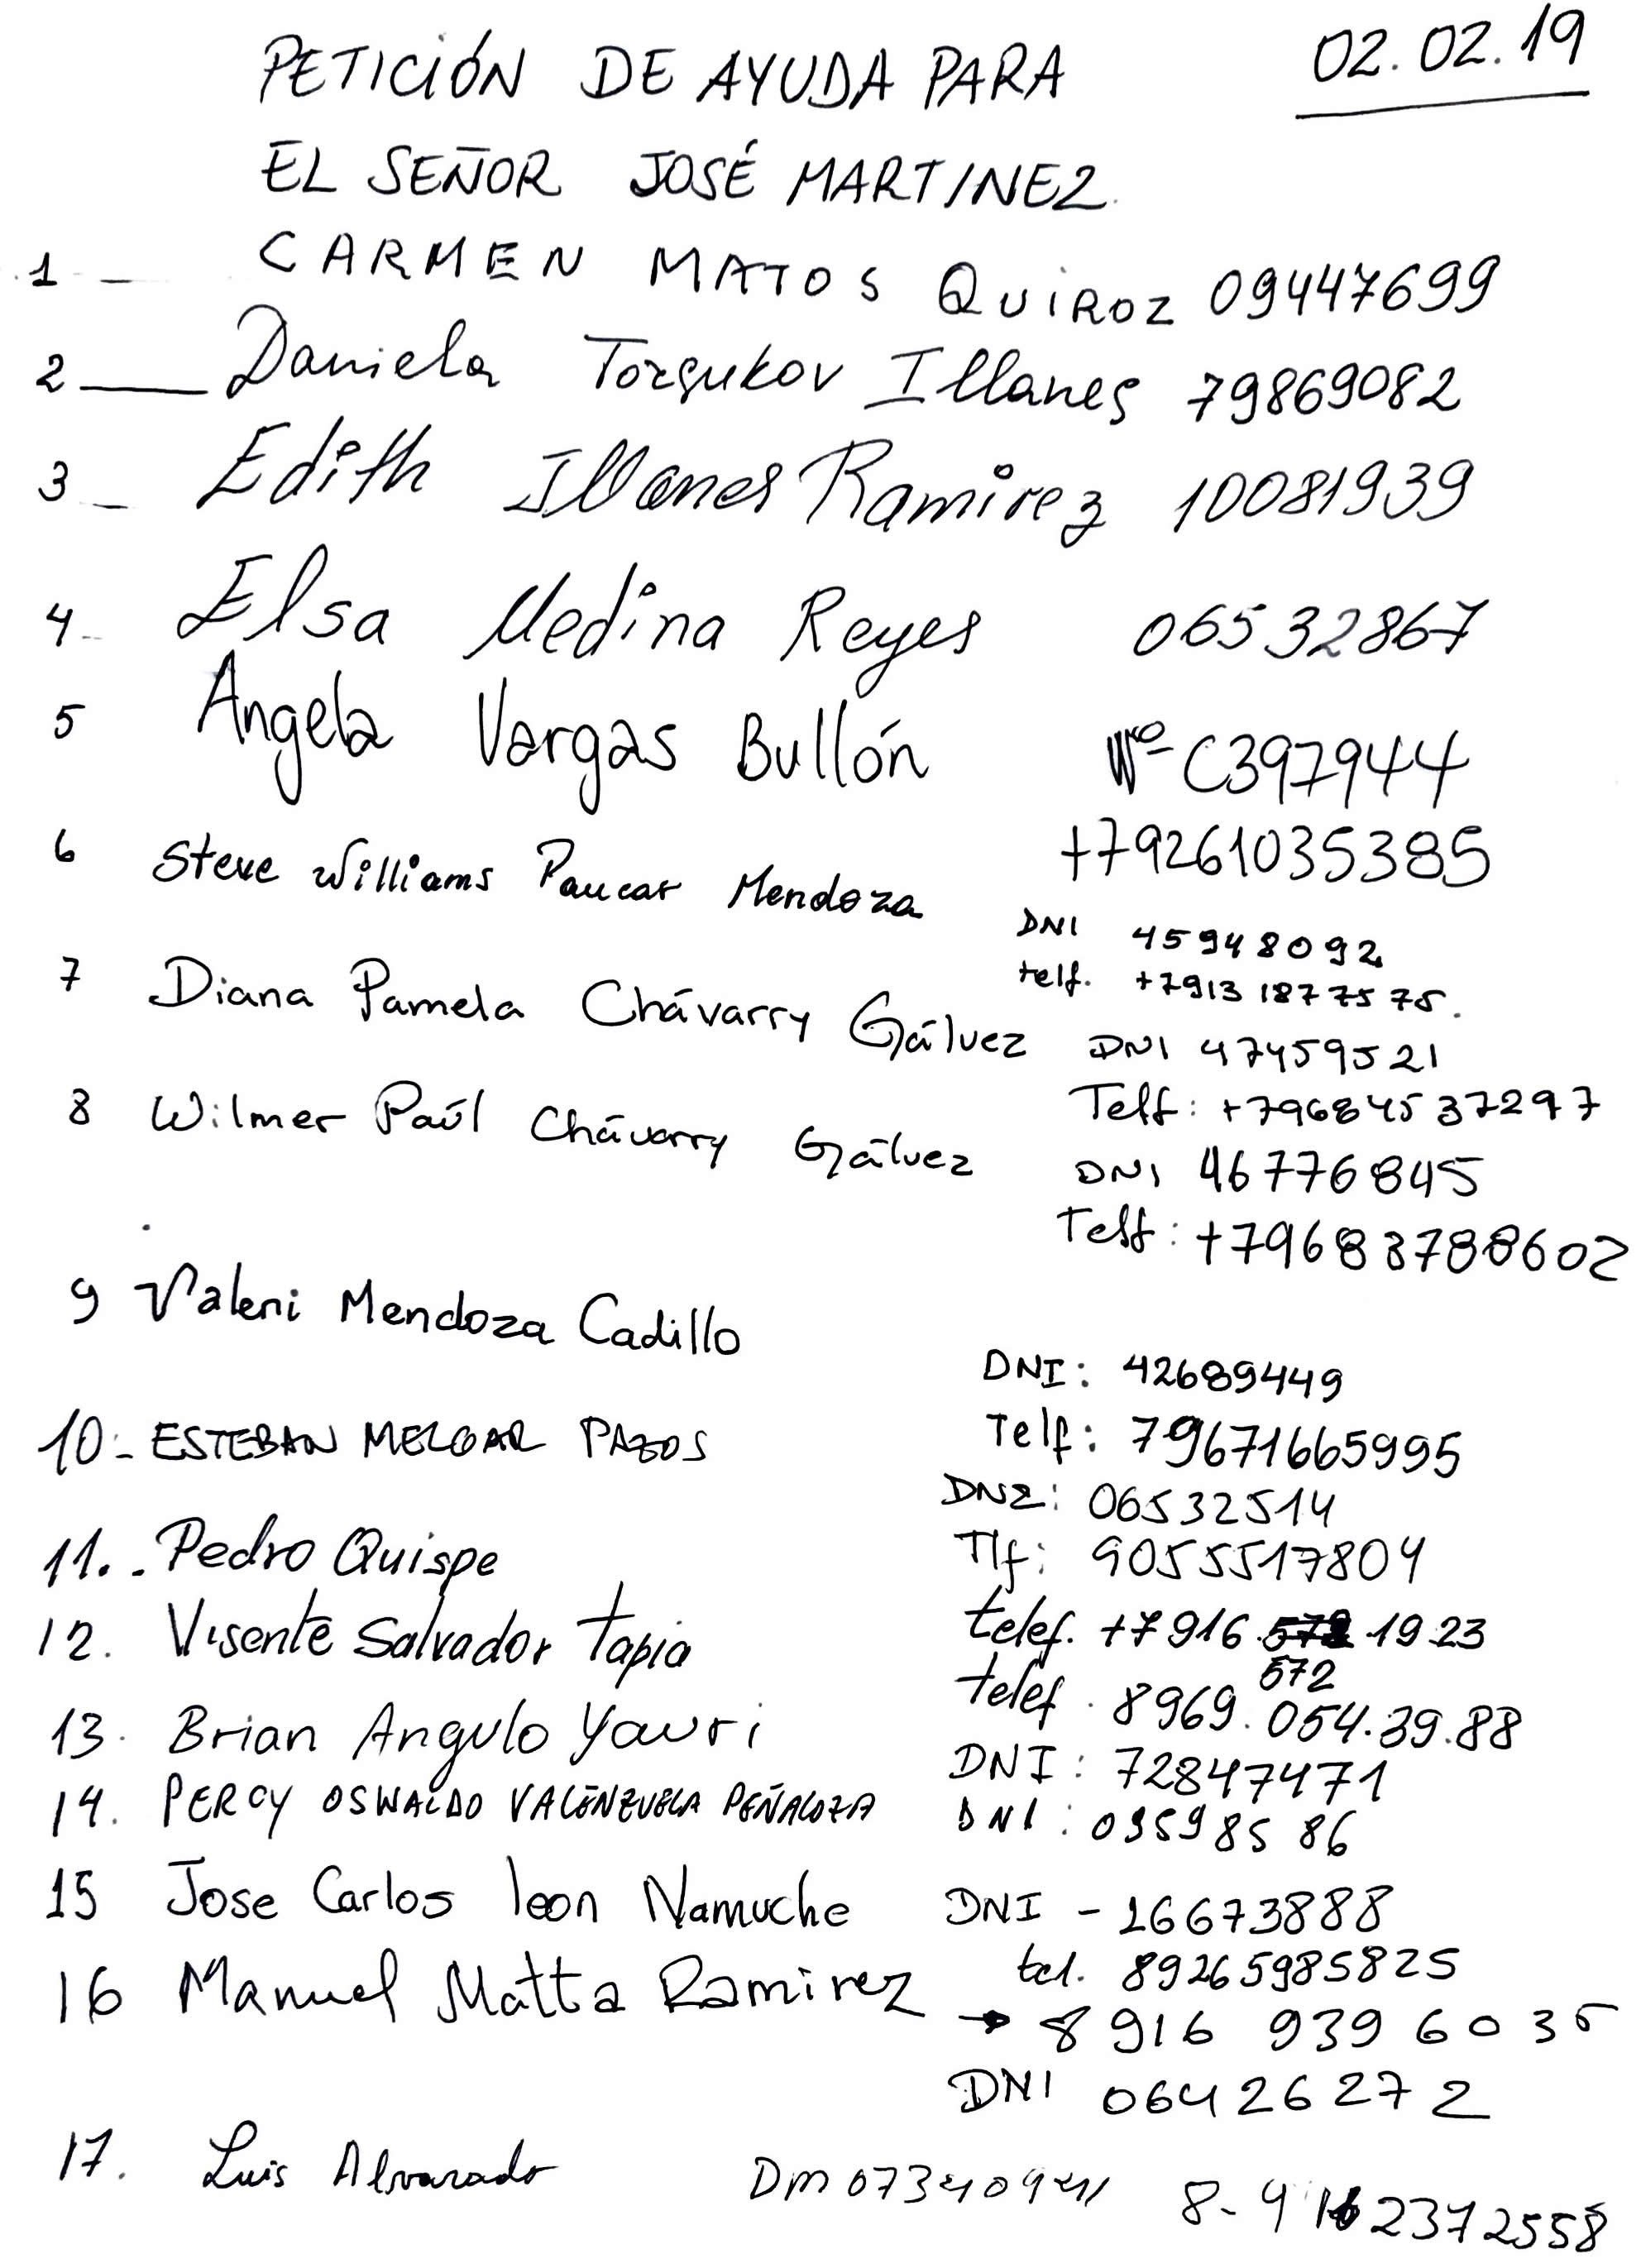 PETICIÓN DE AYUDA PARA 02.02.19
EL SEÑOR JOSÉ MARTINEZ.
1 — CARMEN MATOS QUIROZ 09447699
2 — Daniela Torgukov Illanes 79869082
3 — Edith Illanes Ramirez 10081939
4 - Elsa Medina Reyes 06532867
5 Angela Vargas Bullón Nº C397944
+79261035385
6 Steve Williams Paucar Mendoza DNI 45948092
telf. +7913 187 75 75.
7 Diana Pamela Chávarry Gálvez DNI 47459521
Telf: +79684537297
8 Wilmer Paúl Chávarry Gálvez DNI 46776845
Telf: +79683788602
9 Valeni Mendoza Cadillo DNI: 42689449
Telf: 79671665995
10- ESTEBAN MELGAR PAZOS DNI: 06532514
Tlf: 9055517804
11.. Pedro Quispe telef. +7 916 572 19 23
12. Visente Salvador tapia telef. 8969.054.39.88
13. Brian Angulo Yauri DNI: 72847471
14. PERCY OSWALDO VALENZUELA PEÑALOZA DNI: 03598586
15 Jose Carlos leon Namuche DNI - 16673888
tel. 89265985825
16 Manuel Matta Ramirez → 8 916 939 6035
DNI 06426272
17. Luis Alvarado 8-916 2372558